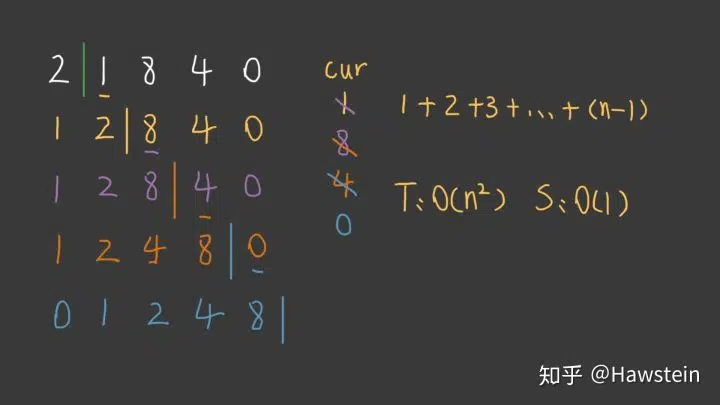 2 | 1 8 4 0
1 2 | 8 4 0
1 2 8 | 4 0
1 2 4 8 | 0
0 1 2 4 8 |
cur
1
8
4
0
1+2+3+...+(n-1)
T:O(n²) S:O(1)
知乎 @Hawstein